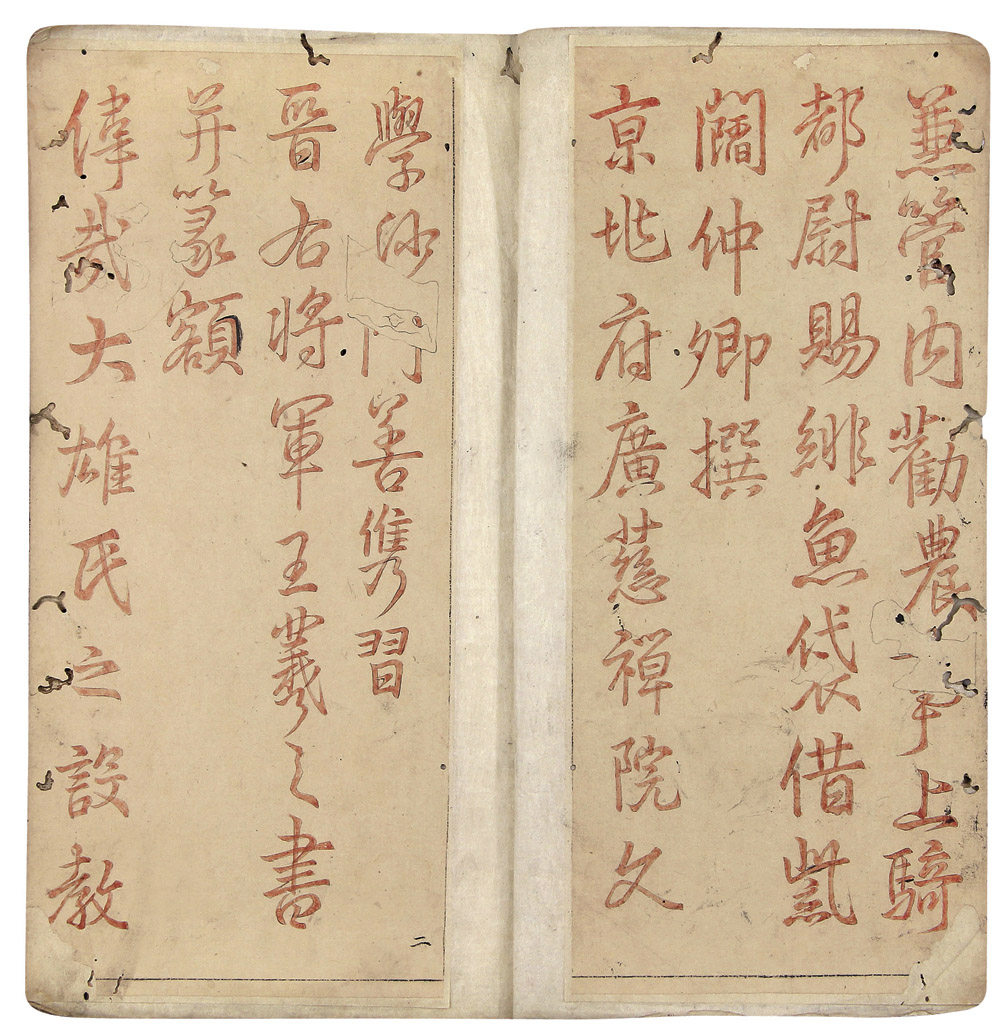 兼管内勸農事上騎
都尉賜緋魚袋借紫
闊仲卿撰
京兆府廣慈禪院文
學沙門善儁習
晉右將軍王羲之書
并篆額
偉哉大雄氏之設教
二